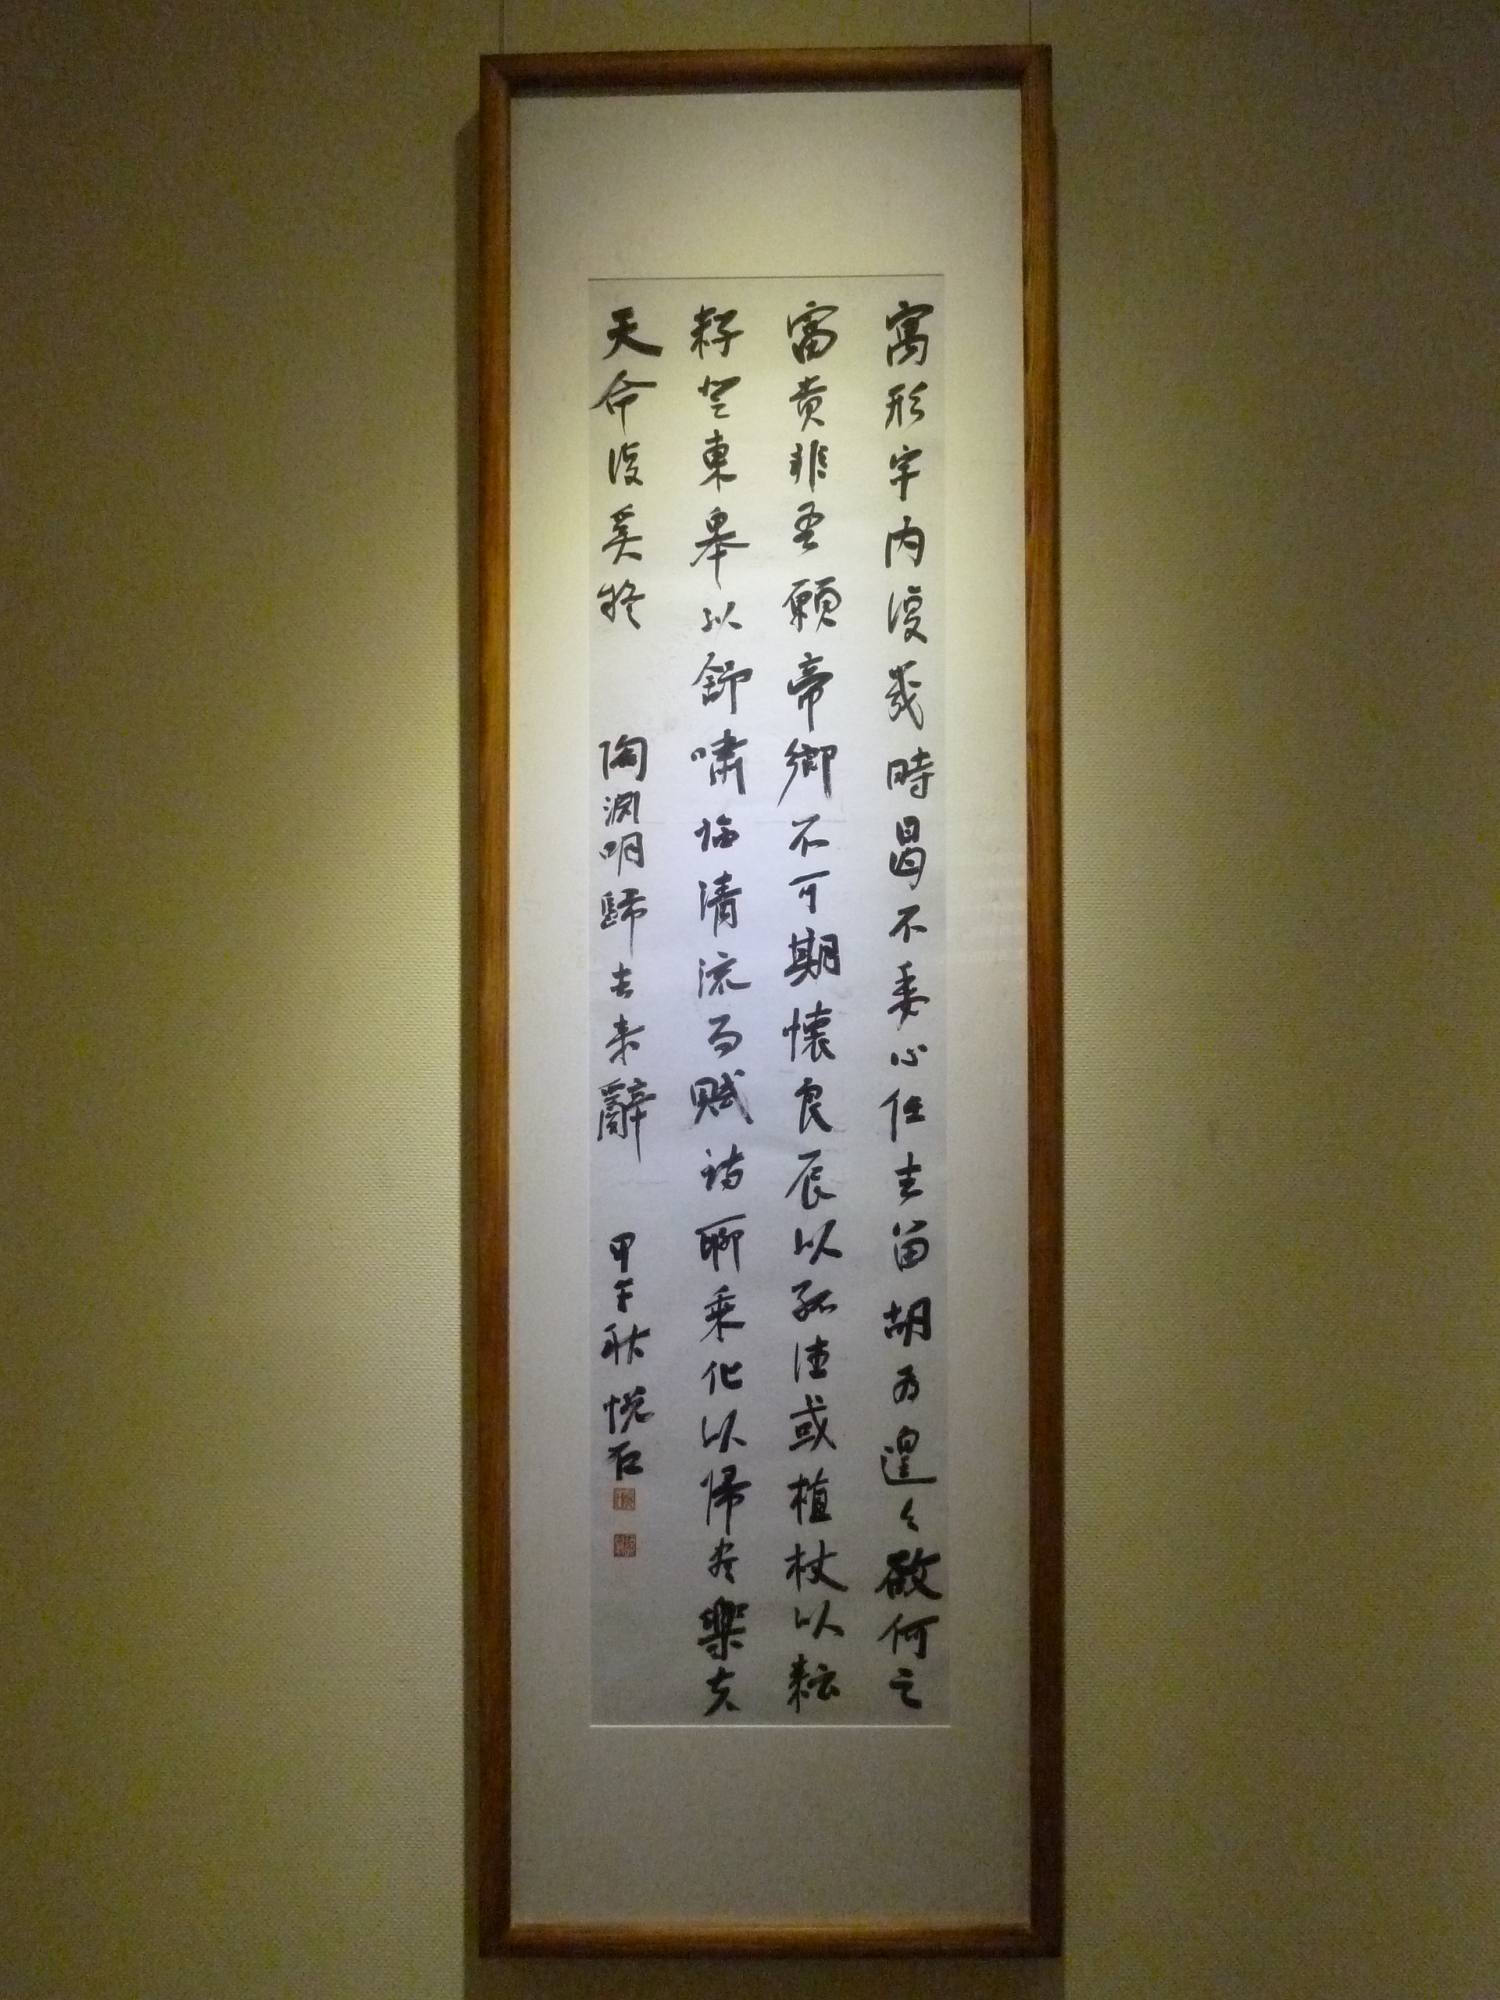 寓形宇内復幾時曷不委心任去留胡為遑々欲何之
富貴非吾願帝鄉不可期懷良辰以孤往或植杖以耘
耔登東皋以舒嘯臨清流而賦詩聊乘化以帰盡樂夫
天命復奚疑 陶淵明歸去来辭 甲午秋 悦石